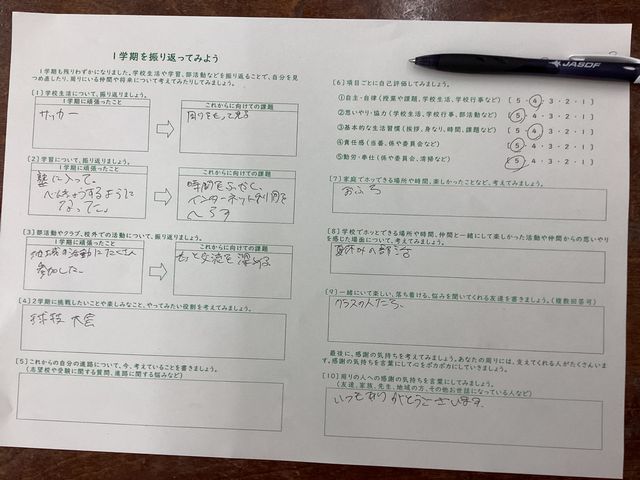 1学期を振り返ってみよう
1学期も残りわずかになりました。学校生活や学習、部活動などを振り返ることで、自分を見つめ直したり、周りにいる仲間や将来について考えてみたりしてみましょう。
[1] 学校生活について、振り返りましょう。
1学期に頑張ったこと
サッカー
これからに向けての課題
周りをもって見る
[2] 学習について、振り返りましょう。
1学期に頑張ったこと
塾に入って、
べんきょうするように
なってた。
これからに向けての課題
時間をふやし、
インターネット利用を
へらす
[3] 部活動やクラブ、校外での活動について、振り返りましょう。
1学期に頑張ったこと
地域の活動にたくさん
参加した
これからに向けての課題
もっと交流を深める
[4] 2学期に挑戦したいことや楽しみなこと、やってみたい役割を考えてみましょう。
球技大会
[5] これからの自分の進路について、今、考えていることを書きましょう。
(志望校や受験に関する質問、進路に関する悩みなど)
[6] 項目ごとに自己評価してみましょう。
①自主・自律(授業や課題、学校生活、学校行事など) [ 5・4・3・2・1 ]
②思いやり・協力(学校生活、学校行事、部活動など) [ 5・4・3・2・1 ]
③基本的な生活習慣(挨拶、身なり、時間、課題など) [ 5・4・3・2・1 ]
④責任感(当番、係や委員会など) [ 5・4・3・2・1 ]
⑤勤労・奉仕(係や委員会、清掃など) [ 5・4・3・2・1 ]
[7] 家庭でホッとできる場所や時間、楽しかったことなど、考えてみましょう。
おふろ
[8] 学校でホッとできる場所や時間、仲間と一緒にして楽しかった活動や仲間からの思いやりを感じた場面について、考えてみましょう。
夏休みの部活
[9] 一緒にいて楽しい、落ち着ける、悩みを聞いてくれる友達を書きましょう。(複数回答可)
クラスの人たち、
最後に、感謝の気持ちを考えてみましょう。あなたの周りには、支えてくれる人がたくさんいます。感謝の気持ちを言葉にして心をポカポカにしていきましょう。
[10] 周りの人への感謝の気持ちを言葉にしてみましょう。
(友達、家族、先生、地域の方、その他お世話になっている人など)
いつもありがとうございます。
JASDF